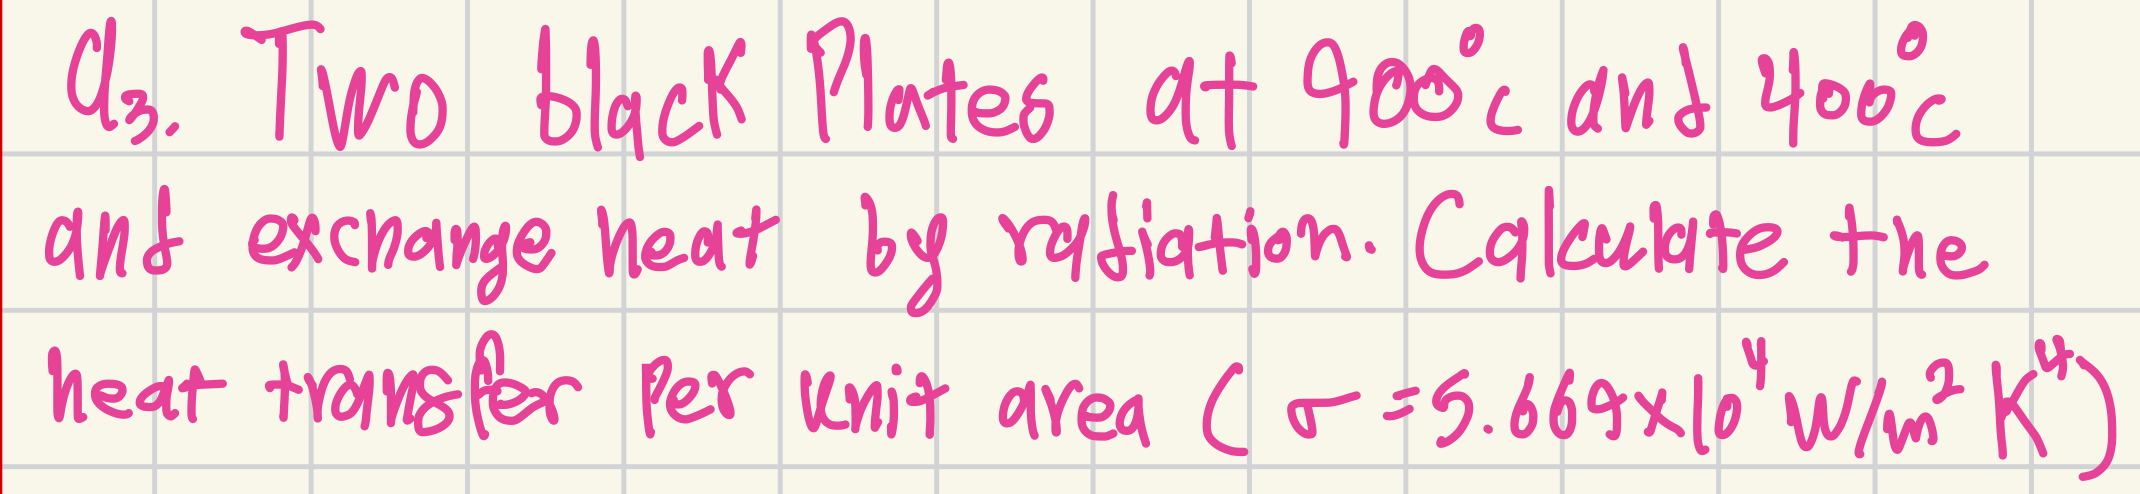 Q3. Two black Plates at 900°c and 400°c
and exchange heat by radiation. Calculate the
heat transfer Per unit area ( σ =5.669x10⁴ W/m² K⁴)